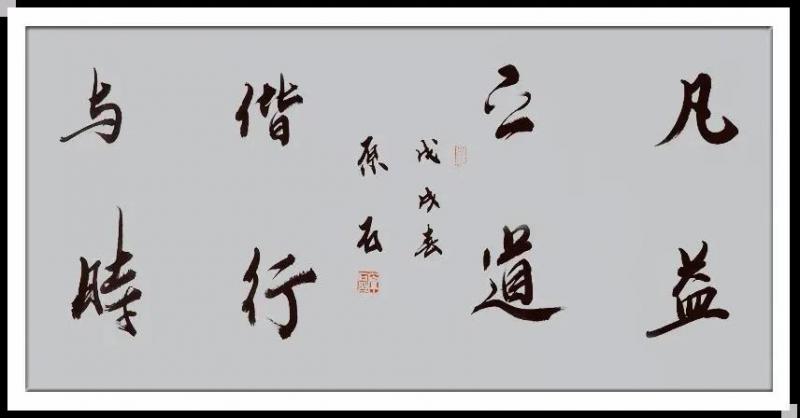 凡益
之道
戊戌春
原石
偕行
与時